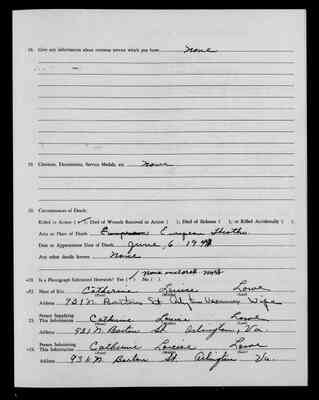 18. Give any information about overseas service which you have: none
19. Citations, Decorations, Service Medals, etc. none
20. Circumstances of Death:
Killed in Action (✓); Died of Wounds Received in Action ( ); Died of Sickness ( ); or Killed Accidentally ( ).
Area or Place of Death European
Date or Approximate Date of Death June 6 1944
Any other details known None
Is a Photograph Submitted Herewith? Yes ( ) No ( )
Next of Kin Catherine Louise Lowe
Address 921 N Barton St
Person Supplying
This Information Catherine Louise Lowe
Address St. Arlington, Va.
Person Submitting
This Information Catherine Louise Lowe
Address N Barton St. Arlington Va.